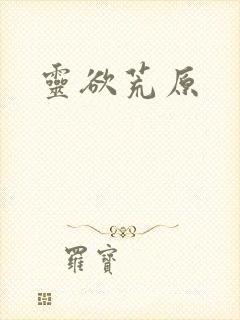 靈欲荒原
羅寶